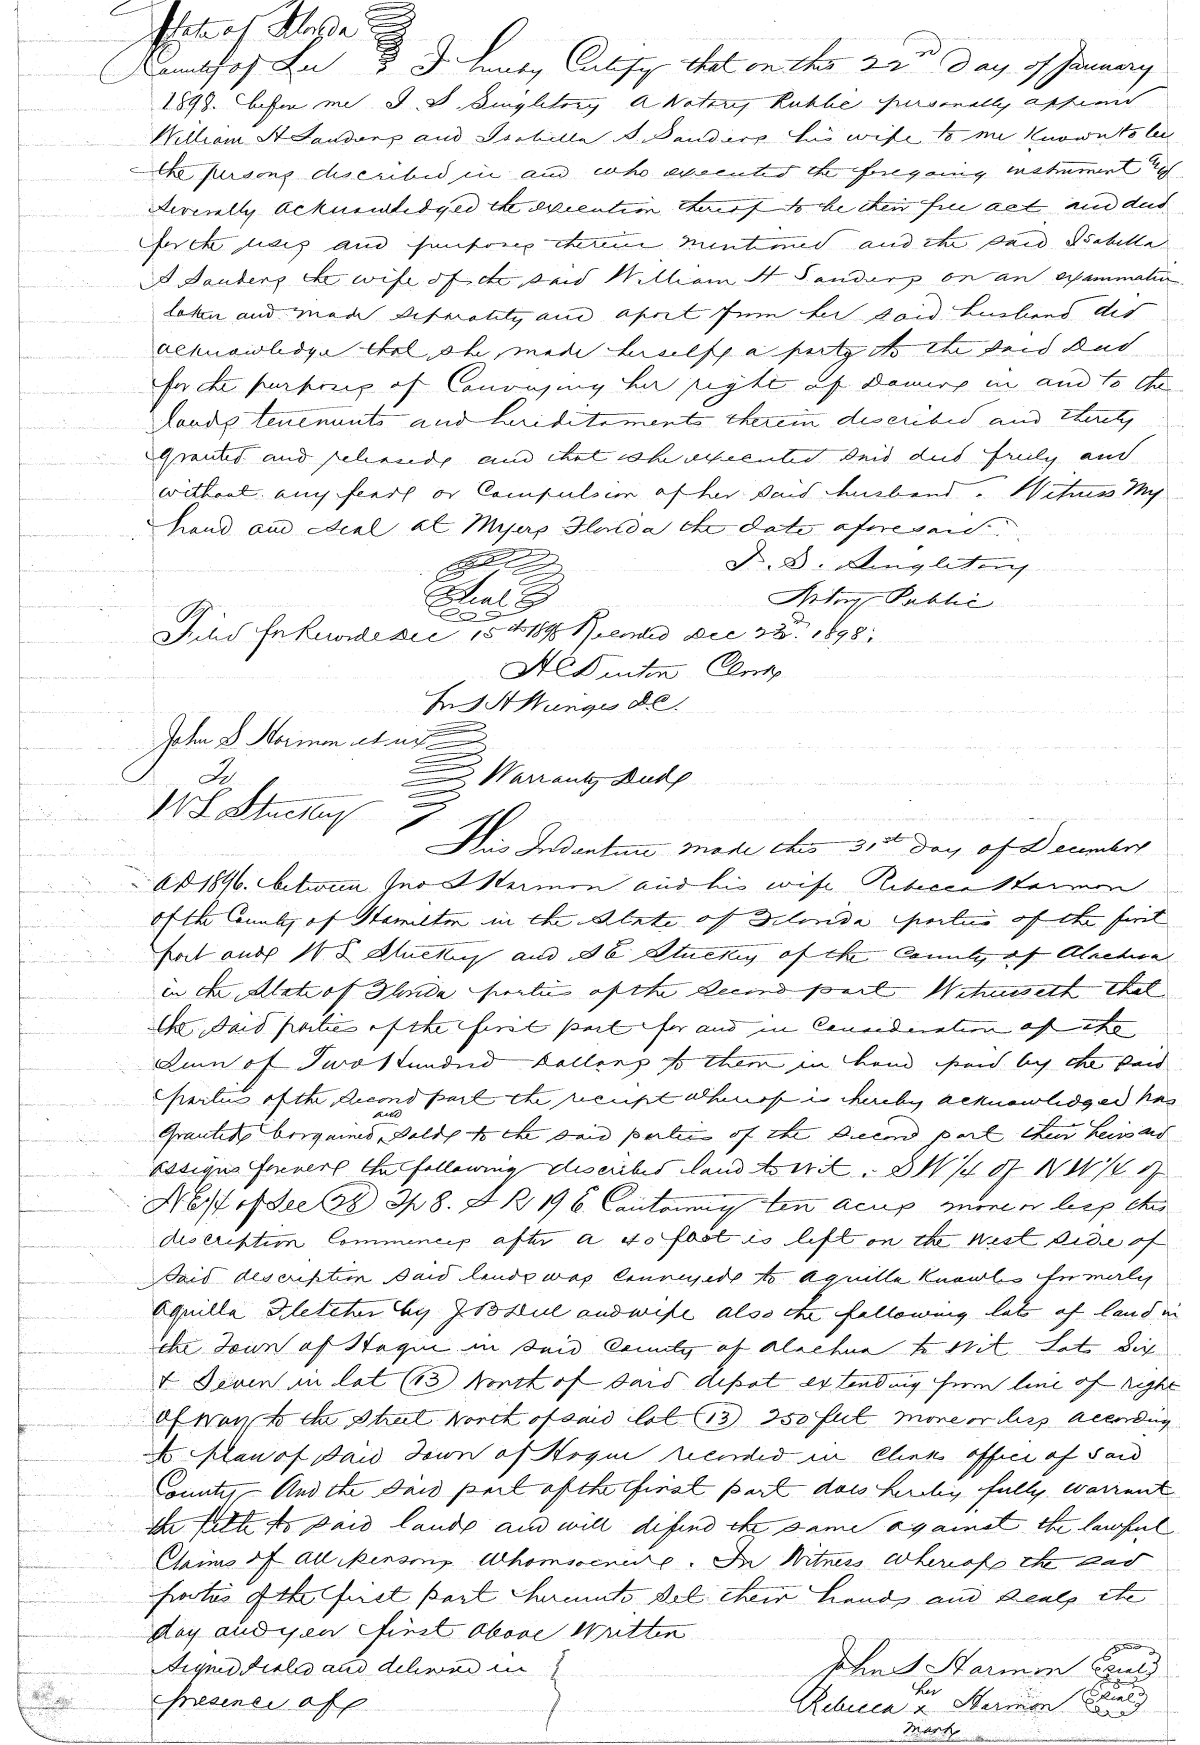 State of Florida
County of Lee I hereby Certify that on this 22nd Day of January
1898. before me I. S. Singletory a Notary Public personally appeared
William H Sanders and Isabella S. Sanders his wife to me Known to be
the persons described in and who executed the foregoing instrument and
severally acknowledged the execution thereof to be their free act and deed
for the uses and purposes therein mentioned and the said Isabella
S Sanders the wife of the said William H Sanders on an examination
taken and made separately and apart from her said husband did
acknowledge that she made herself a party to the said Deed
for the purposes of Conveying her right of Dower in and to the
lands tenements and hereditaments therein described and thereby
granted and released and that she executed said deed freely and
without any fear or Compulsion of her said husband. Witness My
hand and seal at Myers Florida the date aforesaid.
S. Singletory
Seal Notary Public
Filed for Record Dec 15th 1898 Recorded Dec 23d. 1898.
Clerk
D.C.
John S Harmon et ux
To Warranty Deed
W L Stuckey
This Indenture made this 31st Day of December
AD 1896. between Jno S Harmon and his wife Rebecca Harmon
of the County of Hamilton in the State of Florida parties of the first
part and W L Stuckey and S E Stuckey of the County of Alachua
in the State of Florida parties of the Second part Witnesseth that
the said parties of the first part for and in Consideration of the
Sum of Two Hundred Dollars to them in hand paid by the said
parties of the Second part the receipt whereof is hereby acknowledged has
Granted bargained and Sold to the said parties of the Second part their heirs and
assigns forever the following described land to wit. SW 1/4 of NW 1/4 of
NE 1/4 of Sec (28) Tp 8. S R 19 E Containing ten acres more or less this
description Commences after a 40 foot is left on the West side of
Said description said lands was Conveyed to Aquilla Knowles formerly
Aquilla Fletcher by J B Dell and wife also the following lots of land in
the Town of Hague in said County of Alachua to wit Lots Six
& Seven in lot (13) North of said depot extending from line of right
of way to the Street North of said lot (13) 250 feet more or less according
to plan of said Town of Hague recorded in Clerks office of said
County And the said part of the first part does hereby fully warrant
the title to said lands and will defend the same against the lawful
Claims of all persons whomsoever. In Witness whereof the said
parties of the first part hereunto set their hands and seals the
day and year first above Written
Signed Sealed and delivered in John S Harmon Seal
presence of Rebecca her x Harmon Seal
mark